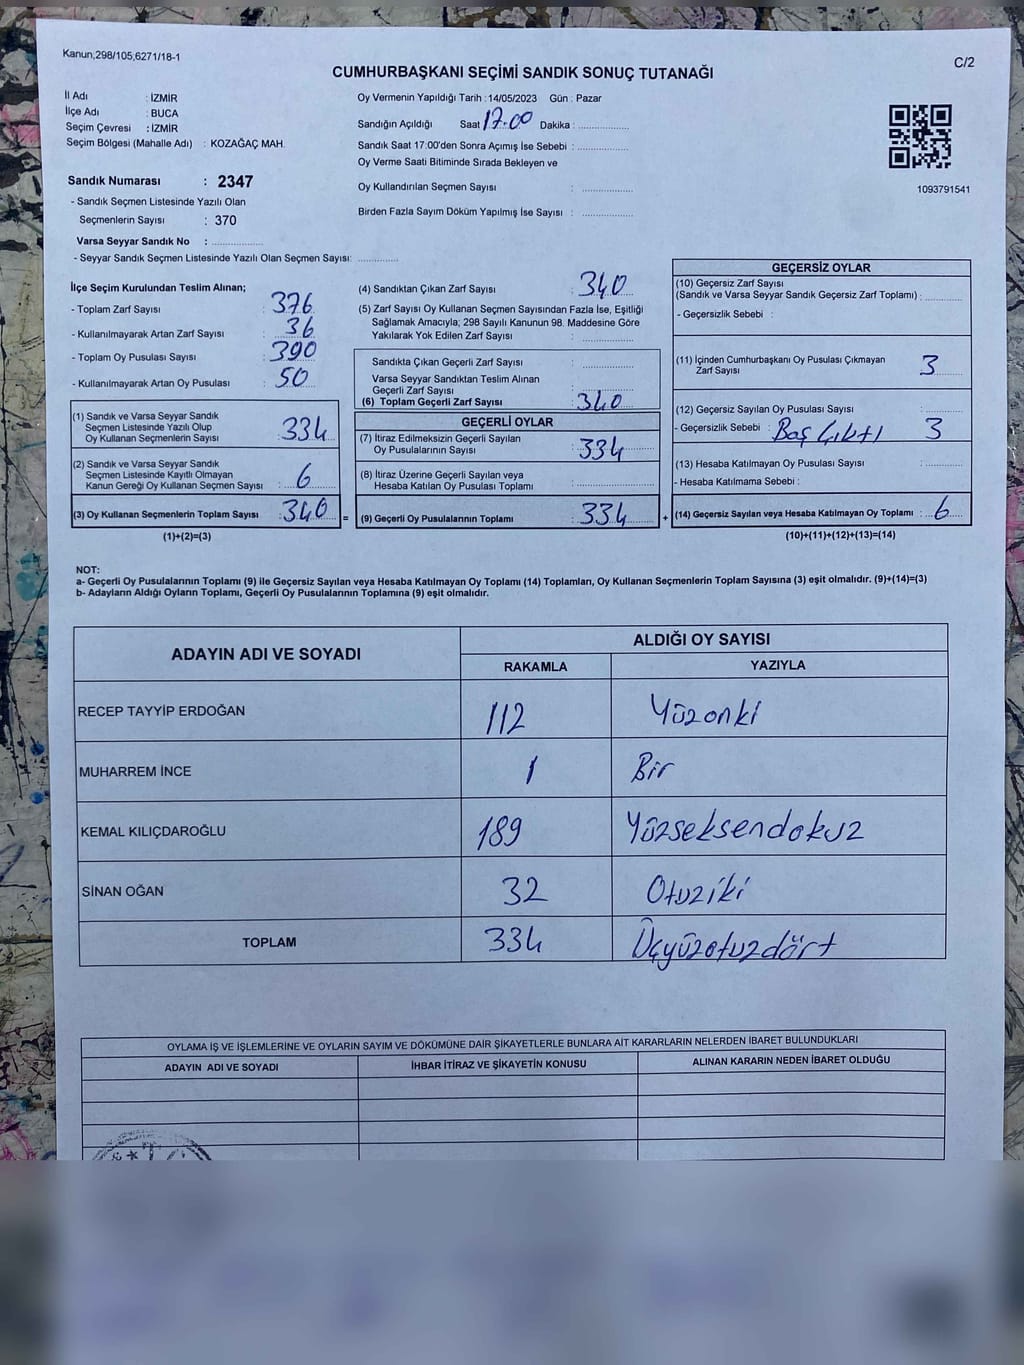 Kanun,298/105,6271/18-1
C/2
CUMHURBAŞKANI SEÇİMİ SANDIK SONUÇ TUTANAĞI
İl Adı : İZMİR
İlçe Adı : BUCA
Seçim Çevresi : İZMİR
Seçim Bölgesi (Mahalle Adı) : KOZAĞAÇ MAH.
Oy Vermenin Yapıldığı Tarih : 14/05/2023 Gün : Pazar
Sandığın Açıldığı Saat 17.00 Dakika : ..................
Sandık Saat 17:00'den Sonra Açımış İse Sebebi : ..................
Oy Verme Saati Bitiminde Sırada Bekleyen ve
Oy Kullandırılan Seçmen Sayısı : ..................
Birden Fazla Sayım Döküm Yapılmış İse Sayısı : ..................
1093791541
Sandık Numarası : 2347
- Sandık Seçmen Listesinde Yazılı Olan
Seçmenlerin Sayısı : 370
Varsa Seyyar Sandık No : ..................
- Seyyar Sandık Seçmen Listesinde Yazılı Olan Seçmen Sayısı: ..............
İlçe Seçim Kurulundan Teslim Alınan;
- Toplam Zarf Sayısı : 376
- Kullanılmayarak Artan Zarf Sayısı : 36
- Toplam Oy Pusulası Sayısı : 390
- Kullanılmayarak Artan Oy Pusulası : 50
(1) Sandık ve Varsa Seyyar Sandık
Seçmen Listesinde Yazılı Olup
Oy Kullanan Seçmenlerin Sayısı : 334
(2) Sandık ve Varsa Seyyar Sandık
Seçmen Listesinde Kayıtlı Olmayan
Kanun Gereği Oy Kullanan Seçmen Sayısı : 6
(3) Oy Kullanan Seçmenlerin Toplam Sayısı : 340 =
(1)+(2)=(3)
(4) Sandıktan Çıkan Zarf Sayısı : 340
(5) Zarf Sayısı Oy Kullanan Seçmen Sayısından Fazla İse, Eşitliği
Sağlamak Amacıyla; 298 Sayılı Kanunun 98. Maddesine Göre
Yakılarak Yok Edilen Zarf Sayısı : ..................
Sandıkta Çıkan Geçerli Zarf Sayısı : ..................
Varsa Seyyar Sandıktan Teslim Alınan
Geçerli Zarf Sayısı : ..................
(6) Toplam Geçerli Zarf Sayısı : 340
GEÇERLİ OYLAR
(7) İtiraz Edilmeksizin Geçerli Sayılan
Oy Pusulalarının Sayısı : 334
(8) İtiraz Üzerine Geçerli Sayılan veya
Hesaba Katılan Oy Pusulası Toplamı : ..................
(9) Geçerli Oy Pusulalarının Toplamı : 334 +
GEÇERSİZ OYLAR
(10) Geçersiz Zarf Sayısı
(Sandık ve Varsa Seyyar Sandık Geçersiz Zarf Toplamı) : ............
- Geçersizlik Sebebi :
(11) İçinden Cumhurbaşkanı Oy Pusulası Çıkmayan
Zarf Sayısı : 3
(12) Geçersiz Sayılan Oy Pusulası Sayısı : ............
- Geçersizlik Sebebi : Boş Çıktı 3
(13) Hesaba Katılmayan Oy Pusulası Sayısı : ............
- Hesaba Katılmama Sebebi :
(14) Geçersiz Sayılan veya Hesaba Katılmayan Oy Toplamı : 6
(10)+(11)+(12)+(13)=(14)
NOT:
a- Geçerli Oy Pusulalarının Toplamı (9) ile Geçersiz Sayılan veya Hesaba Katılmayan Oy Toplamı (14) Toplamları, Oy Kullanan Seçmenlerin Toplam Sayısına (3) eşit olmalıdır. (9)+(14)=(3)
b- Adayların Aldığı Oyların Toplamı, Geçerli Oy Pusulalarının Toplamına (9) eşit olmalıdır.
ADAYIN ADI VE SOYADI
ALDIĞI OY SAYISI
RAKAMLA YAZIYLA
RECEP TAYYİP ERDOĞAN 112 Yüzonki
MUHARREM İNCE 1 Bir
KEMAL KILIÇDAROĞLU 189 Yüzseksendokuz
SİNAN OĞAN 32 Otuziki
TOPLAM 334 Üçyüzotuzdört
OYLAMA İŞ VE İŞLEMLERİNE VE OYLARIN SAYIM VE DÖKÜMÜNE DAİR ŞİKAYETLERLE BUNLARA AİT KARARLARIN NELERDEN İBARET BULUNDUKLARI
ADAYIN ADI VE SOYADI İHBAR İTİRAZ VE ŞİKAYETİN KONUSU ALINAN KARARIN NEDEN İBARET OLDUĞU